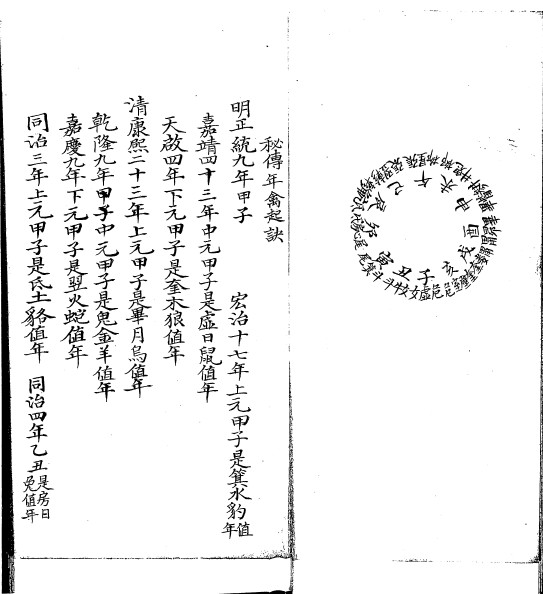 秘傳年禽起訣
明正統九年甲子 宏治十七年上元甲子是箕水豹值年
嘉靖四十三年中元甲子是虛日鼠值年
天啟四年下元甲子是奎木狼值年
清康熙二十三年上元甲子是畢月烏值年
乾隆九年甲子中元甲子是鬼金羊值年
嘉慶九年下元甲子是翌火蛇值年
同治三年上元甲子是氐土貉值年 同治四年乙丑是房日兔值年
子丑寅卯辰巳午未申酉戌亥